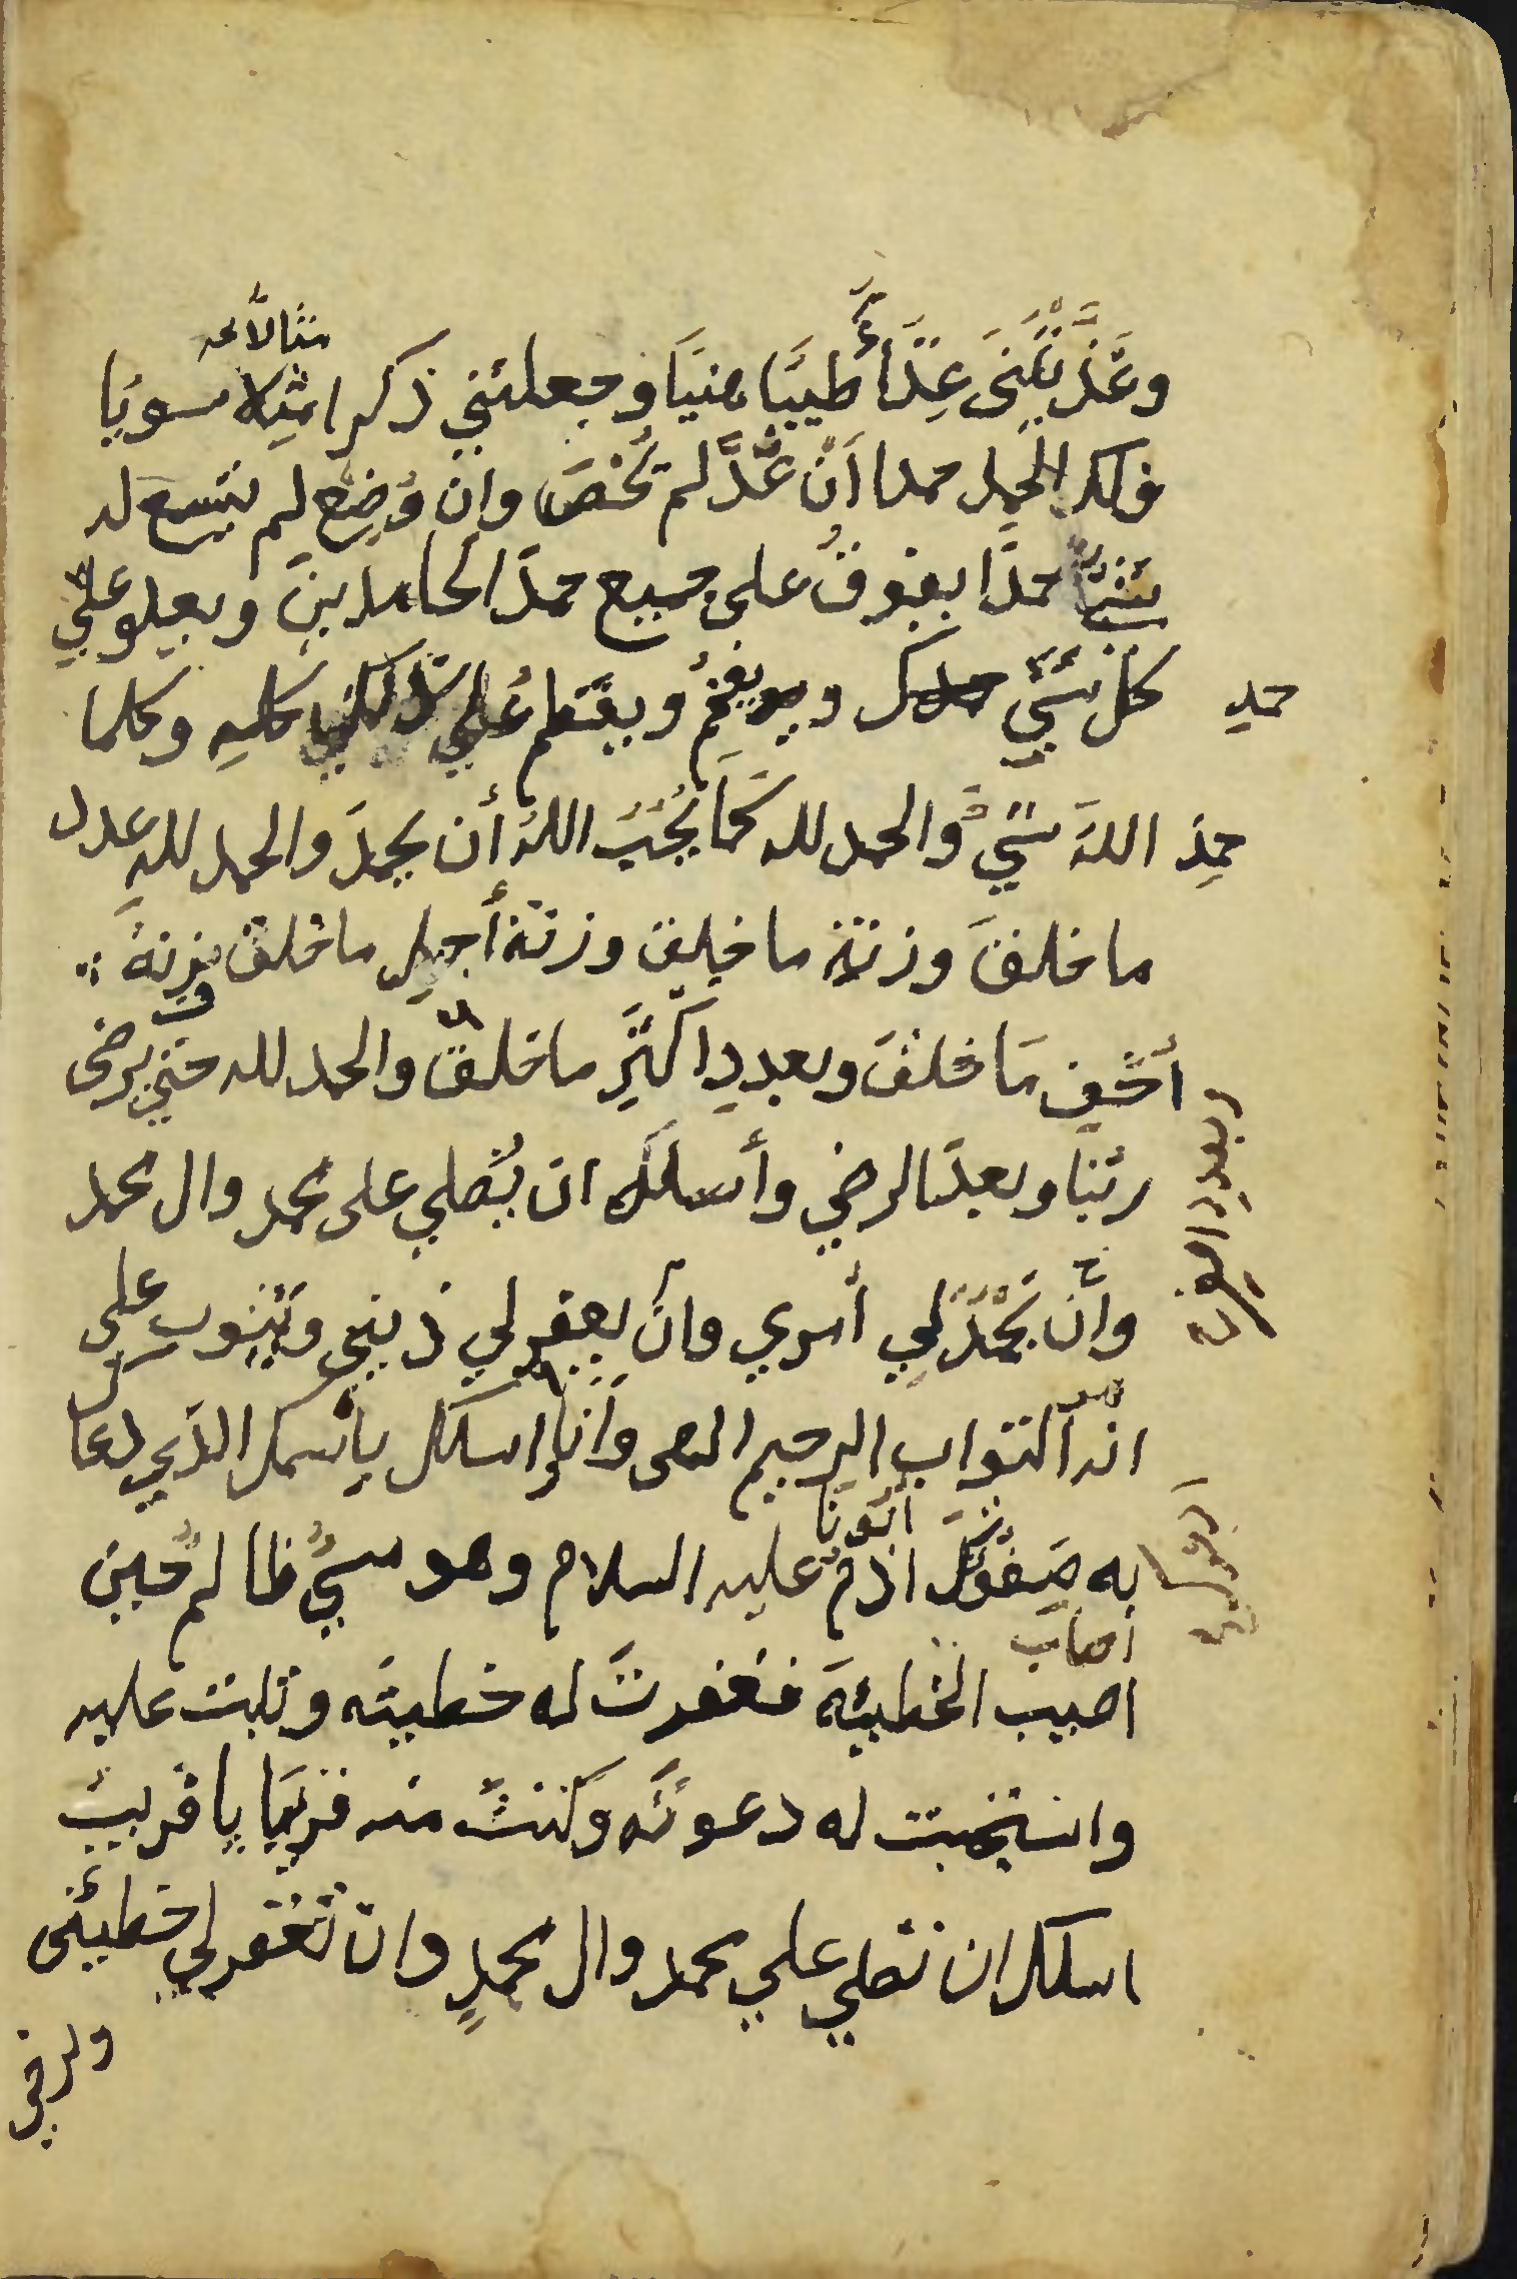 مثالا صح
وغذيتني غذاً طيبًا هنيًا وجعلتني ذكرا مثلا سويا
فلك الحمد حمدا ان عُدَّ لم يُحْصَ وان وُضِع لم يتسع له
شيئٌ حمدًا يفوقُ على جميع حمدَ الحامدين ويعلو على
حمدِ كل شيئ ويفخم ويعظم على ذلك كلهِ وكلما
حمِدَ اللهَ شيءٌ والحمد لله كما يُحبُ اللهُ أن يحمدَ والحمد لله عدد
ما خلقَ وزنة ما خلق وزنة أجل ما خلق وزنة
أخف مَا خلقَ وبعددِ اكثرِ ما خلقَ والحمد لله حتى يرضى
ربنا وبعد الرضي وأسئلك ان يُصلي على محمد وال محمد
وان يحمدَ لي أمري وان يغفر لي ذنبي ويتوب على
انه التواب الرحيم الهى وانا اسئلك باسمك الذي دعاك
به صَفوَتُكَ ادمُ أبونا عليه السلام وهو مسيءٌ ظالمٌ حين
اصيب أصاب الخطيئةَ فغفرتَ له خطيئته وتبت عليه
واستجبت له دعوتَه وكنتَ منه قريبًا يا قريبُ
اسئلك ان تصلي علي محمد وال محمدٍ وان تُغفر لي خطيئتى
وترضى